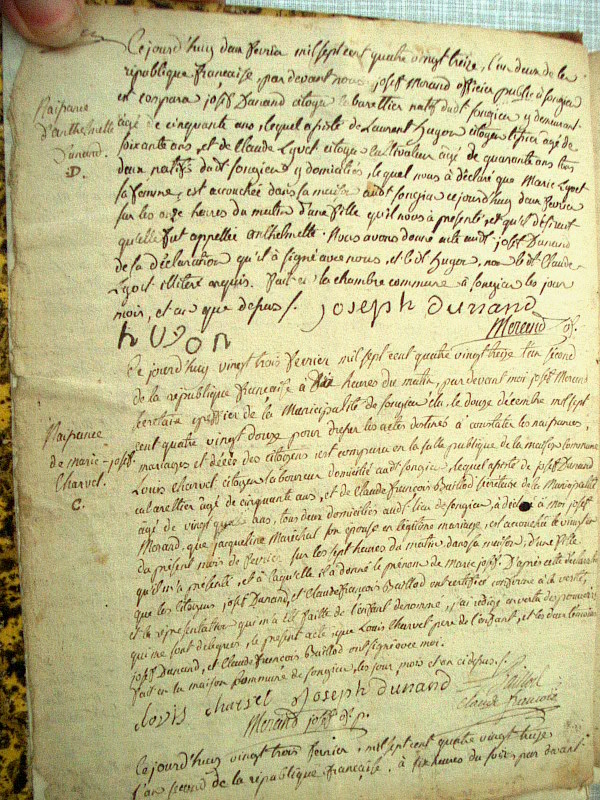 Cejourd'huy deux fevrier mil sept cent quatre vingt treize, l'an deux de la
république française, par devant nous josef Morand officier public à songieu
est comparu josef Dunand citoyen cabarettier natif dudt songieu y demeurant
agé de cinquante ans, lequel assisté de Laurent hugon citoyen agé de
soixante ans, et de Claude Lyvet citoyen cultivateur agé de quarante ans tous
deux natifs dudt songieu y domiciliés, lequel nous à déclaré que Marie Lyvet
sa femme, est accouchée dans sa maison audt songieu cejourd'huy deux fevrier
sur les onze heures du matin d'une fille qu'il nous à présenté, et qu'il désiroit
qu'elle fut appellée anthelmette. Nous avons donné acte audt josef Dunand
de sa déclaration qu'il à signé avec nous, et ledt hugon, non ledt Claude
illiteré requis. Fait en la chambre commune à songieu les jour
mois, et an que dessus.
Naissance
d'anthelmette
Dunand.
D.
joseph dunand
Morand of.
huGon
Cejourd'huy vingt trois fevrier mil sept cent quatre vingt treize l'an second
de la république française à dix heures du matin, par devant moi josef Morand
secretaire greffier de la Municipalité de songieu élu le douze décembre mil sept
cent quatre vingt douze pour dresser les actes destinés à constater les naissances,
mariages et décès des citoyens est comparu en la salle publique de la maison commune
Louis charvet citoyen laboureur domicilié audt songieu, lequel assisté de josef Dunand
cabarettier âgé de cinquante ans, et de Claude François Baillod secretaire de la Municipalité
âgé de vingt ans, tous deux domiciliés audt lieu de songieu, à déclaré à moi josef
Morand, que jacqueline Maréchal son épouse en légitime mariage, est accouchée le vingt
du présent mois de fevrier sur les sept heures du matin dans sa maison, d'une fille
qu'il m'a présenté, et à laquelle il a donné le prénom de Marie josef. D'après cette déclaration
que les citoyens josef Dunand, et Claude François Baillod ont certifiée conforme à la verité,
et la représentation qui m'a été faitte de l'enfant dénommé, j'ai rédigé en vertu des pouvoirs
qui me sont délégués, le présent acte, que Louis Charvet pere de l'enfant, et les deux témoins
josef Dunand, et Claude François Baillod ont signé avec moi.
Fait en la maison commune de songieu, les jour mois et an cidessus.
Naissance
de marie-josef
Charvet.
C.
lovis charvet joseph dunand
Bailiod
claude francois
Morand josef of. p.
Cejourd'huy vingt trois fevrier, mil sept cent quatre vingt treize
l'an second de la république française, à six heures du soir, par devant